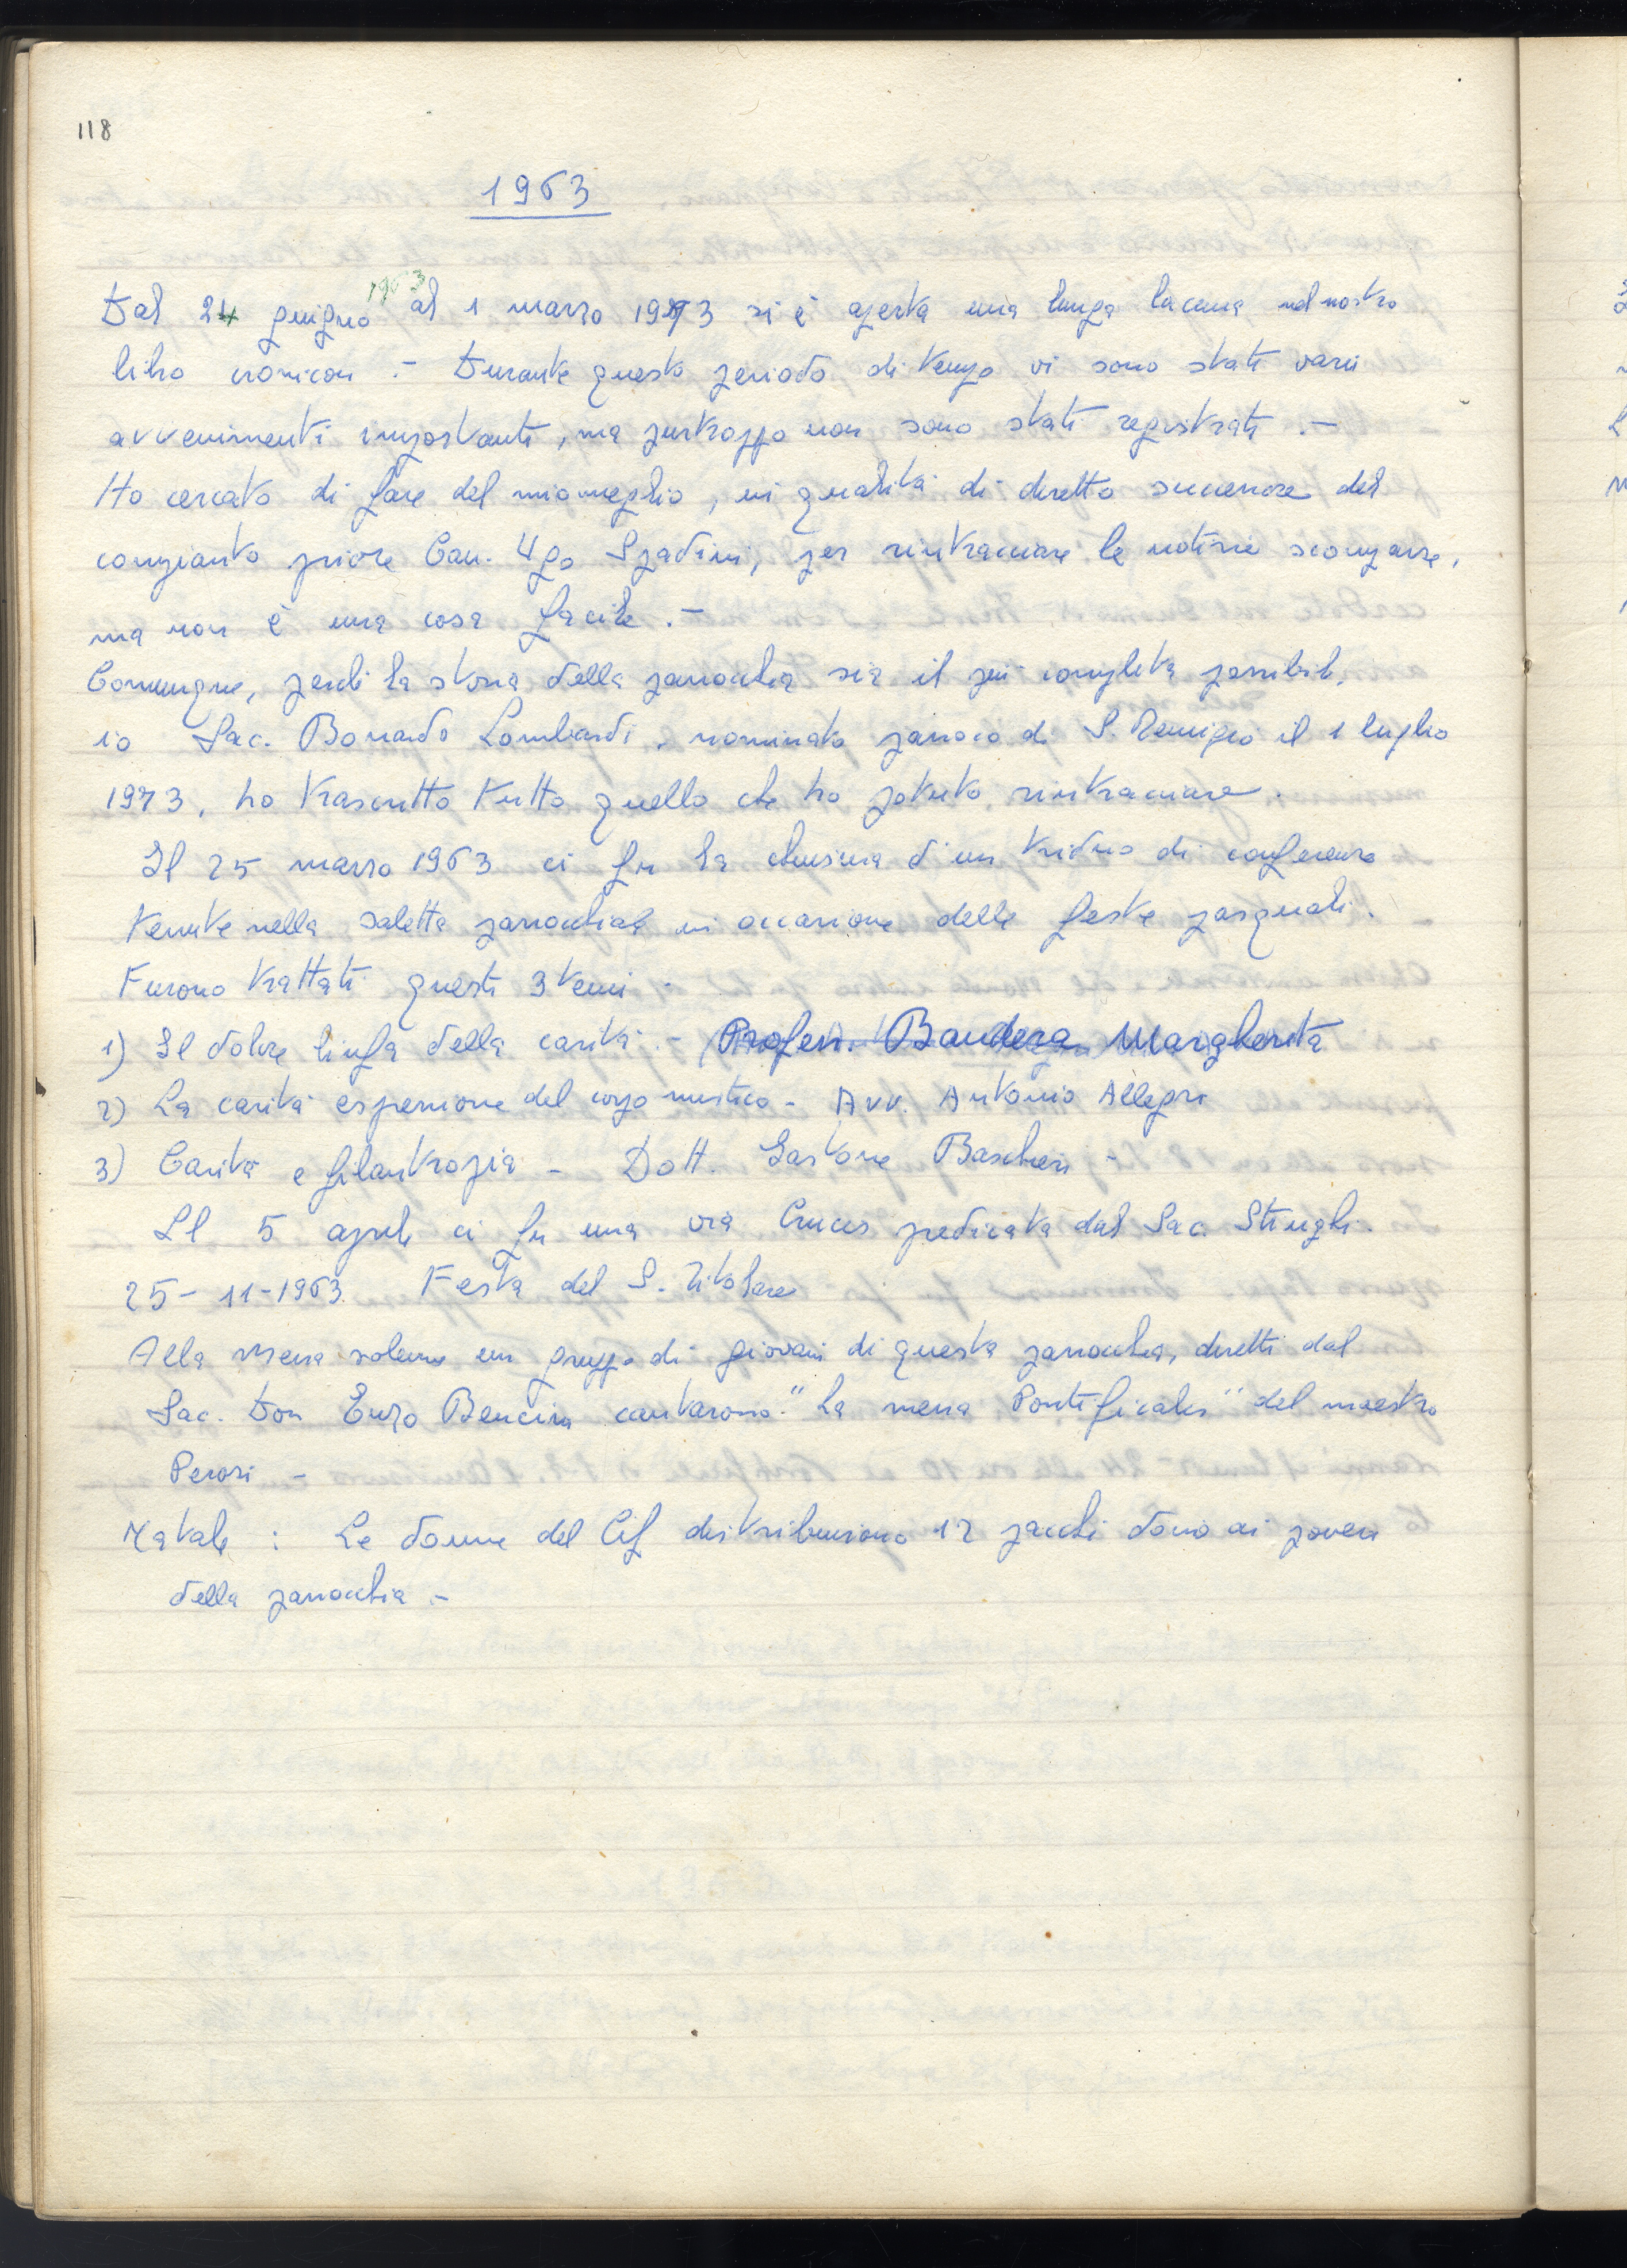 118
1963
Dal 24 giugno 1963 al 1 marzo 1973 si è aperta una lunga lacuna nel nostro
libro cronicon .- Durante questo periodo di tempo vi sono stati varii
avvenimenti importanti, ma purtroppo non sono stati registrati .-
Ho cercato di fare del mio meglio, in qualità di diretto successore del
compianto priore Can. Ugo Spadini, per rintracciare le notizie scomparse,
ma non è una cosa facile .-
Comunque, perchè la storia della parrocchia sia il più completa possibile,
io Sac. Bonardo Lombardi, nominato parroco di S. Remigio il 1 luglio
1973, ho trascritto tutto quello che ho potuto rintracciare.
Il 25 marzo 1963 ci fu la chiusura d'un triduo di conferenze
tenute nella saletta parrocchiale in occasione delle feste pasquali.
Furono trattati questi 3 temi -
1) Il dolore linfa della carità .- Profess. Bandera Margherita
2) La carità espressione del corpo mistico - Avv. Antonio Allegri
3) Carità e filantropia - Dott. Gastone Baschieri -
Il 5 aprile ci fu una via Crucis predicata dal Sac. Stinghi.
25-11-1963 Festa del S. Titolare
Alla Messa solenne un gruppo di giovani di questa parrocchia, diretti dal
Sac. Don Enzo Bencini cantarono "La messa Pontificalis" del maestro
Perosi -
Natale : Le donne del Cif distribuirono 12 pacchi dono ai poveri
della parrocchia .-